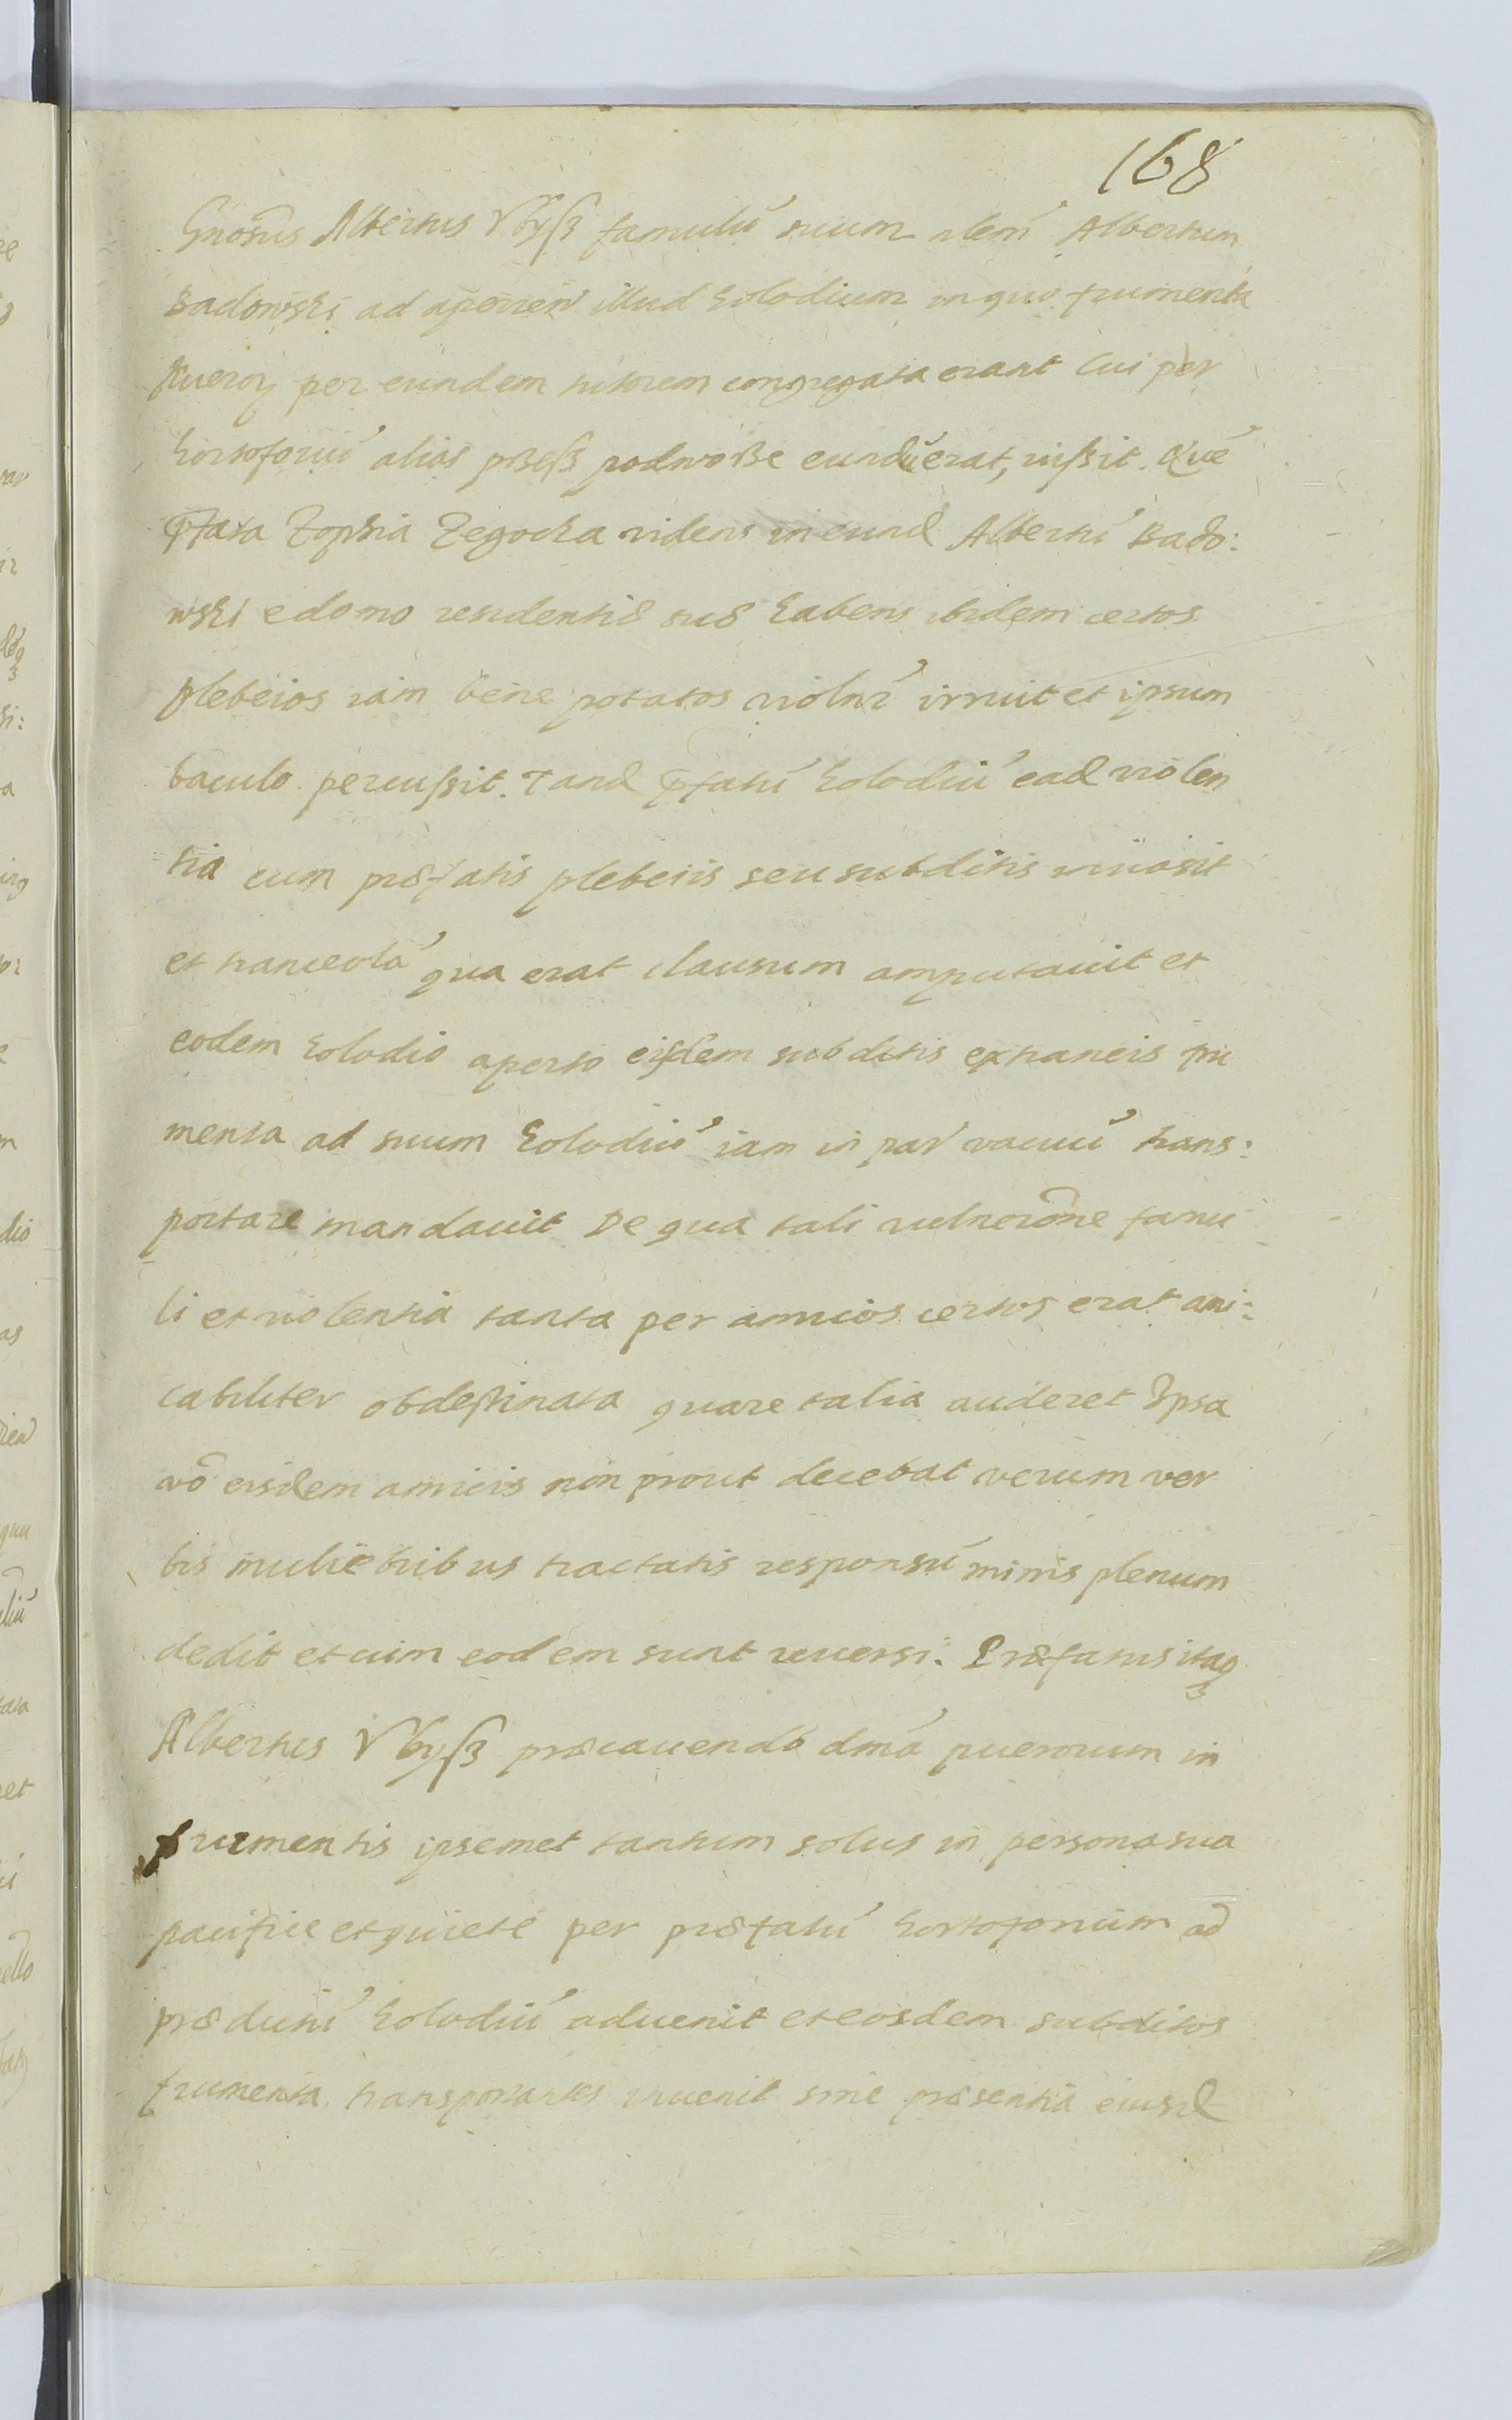 168
Gnosus Albertus Vbysz famulū suum nlem Albertum
Badowski ad aperien illud holodium in quo frumenta
Pueroꝝ per eundem tutorem congregata erant Cui per
hortoforiū alias przesz podworze eundū erat, missit. Quē
p̄fata Zophia Zegocka videns in eund Albertū Bado:
wski e domo residentiæ suæ habens ibidem certos
plebeios iam bene potatos violnr irruit et ipsum
baculo percussit. Tand p̄fatū holodiū ead violen
tia cum præfatis plebeiis seu subditis inuasit
et tranceolā qua erat clausum amputauit et
eodem holodio aperto eisdem subditis extraneis fru
menta ad suum holodiū iam in par vacuū trans:
portare mandauit De qua tali vulnerōne famu
li et violentia tanta per amicos certos erat ami:
cabiliter obdestinata quare talia auderet Ipsa
vō eisdem amicis non prout decebat verum ver
bis mulietribus tractatis responsū minis plenum
dedit et cum eodem sunt reuersi. Præfatus itaqꝫ
Albertus Vbysz præcauendo dmā puerorum in
frumentis ipsemet tantum solus in persona sua
pacifice et quiete per præfatū hortoforium ad
prædictū holodiū aduenit et eosdem subditos
frumenta transportantes inuenit sine præsentia eiusd